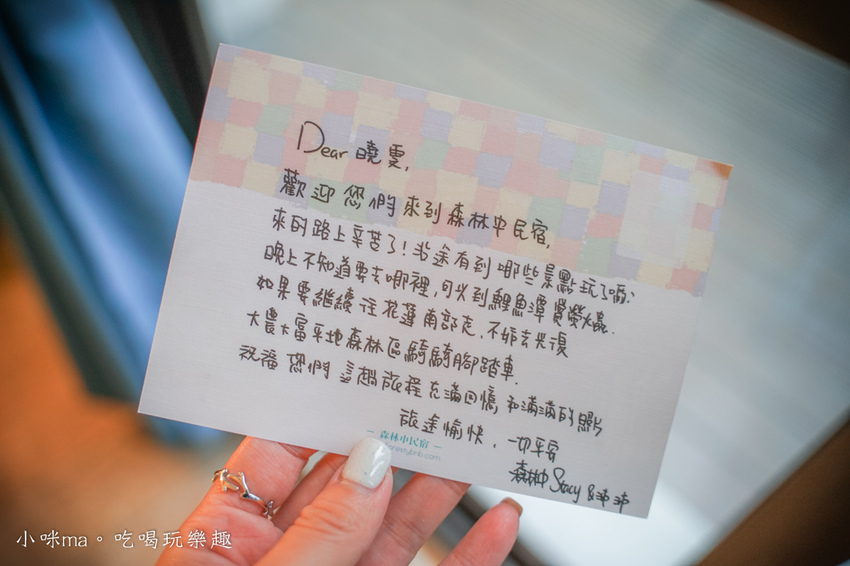 Dear 曉雯,
歡迎您們來到森林中民宿,
來的路上辛苦了!沿途有到哪些景點玩了嗎?
晚上不知道要去哪裡,可以到鯉魚潭賞螢火蟲.
如果要繼續往花蓮南部走,不妨去光復
大農大富平地森林區騎騎腳踏車.
祝福您們這趟旅程充滿回憶,和滿滿的照片
旅途愉快,一切平安
森林中民宿
森林中 Stacy &
小咪ma。吃喝玩樂趣